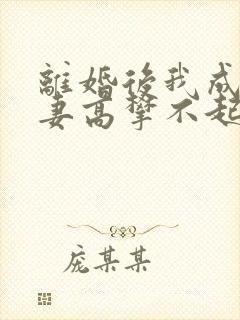 離婚後我成
妻高攀不起
龐某某